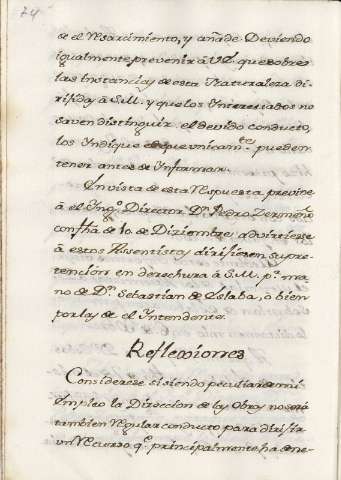 74
se el Resarcimiento, y añade. Deviendo
igualmente prevenir à VE. que sobre
las instancias de esta Naturaleza di-
rijida à S.M. y que los Interesados no
saven distinguir el devido conducto,
los Yndique que unicam.te pueden
tener antes de Ynformar.
En vista de esta Respuesta previne
à el Yng.o Director D.n Pedro Zermeño
con fha de 10 de Diziembre advirtiese
à estos Assentistas dirijiesen su pre-
tencion en derechura à S.M. p.r ma
no de D.n Sebastian de Eslaba, ò bien
por la de el Yntendente.
Reflexiones
Considerese si siendo peculiar de mi
Empleo la Direccion de las Obras no será
tambien Regular conducto para dirijir
un Recurso q.e principalmente ha de ne-